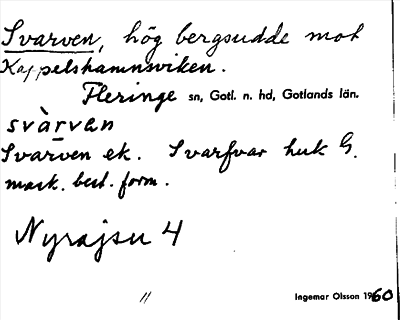 Svarven, hög bergsudde mot
Kappelshamnsviken.
Fleringe sn, Gotl. n. hd, Gotlands län.
svàrvan
Svarven ek. Svarfvar huk G.
mask. best. form.
Nyrajsu 4
11 Ingemar Olsson 1960